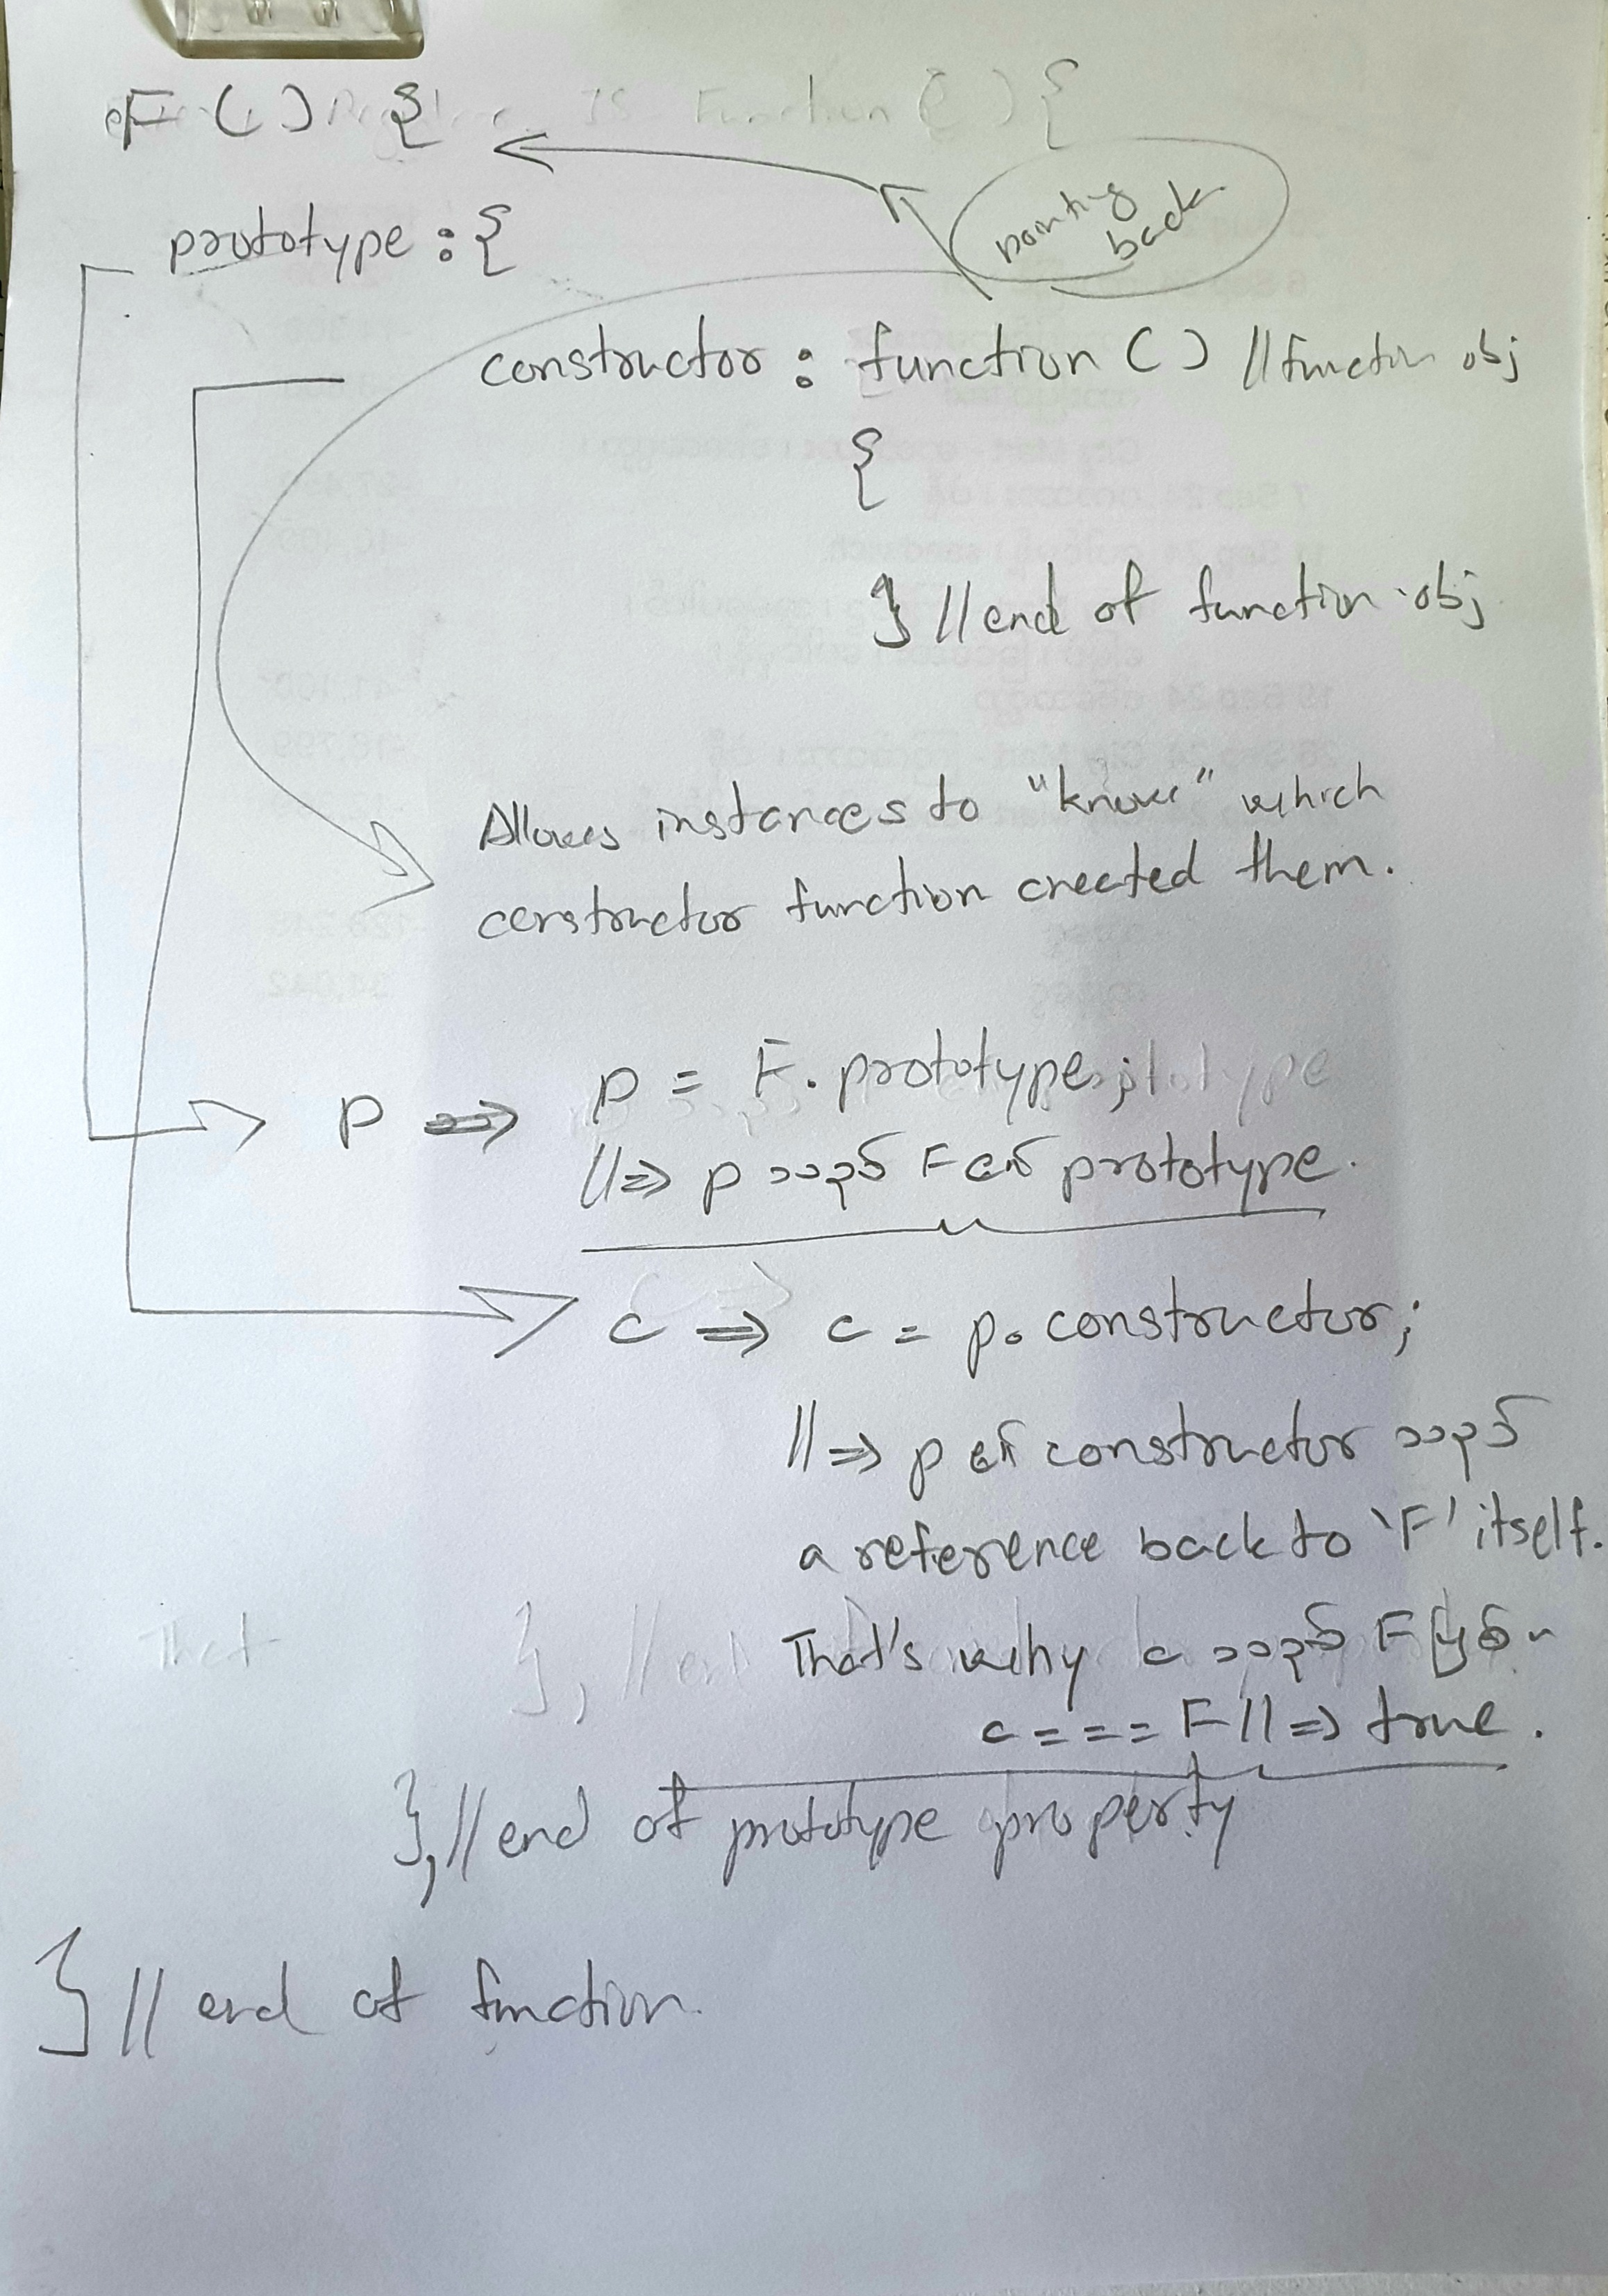 F ( ) {
pointing
back
prototype : {
constructor : function ( ) // function obj
{
} // end of function obj
Allows instances to "know" which
constructor function created them.
p => p = F. prototype;
// => p သည် F ၏ prototype.
c => c = p. constructor;
// => p ၏ constructor သည်
a reference back to 'F' itself.
That's why c သည် F ဖြစ်
c === F // => true.
}, // end of prototype property
} // end of function.